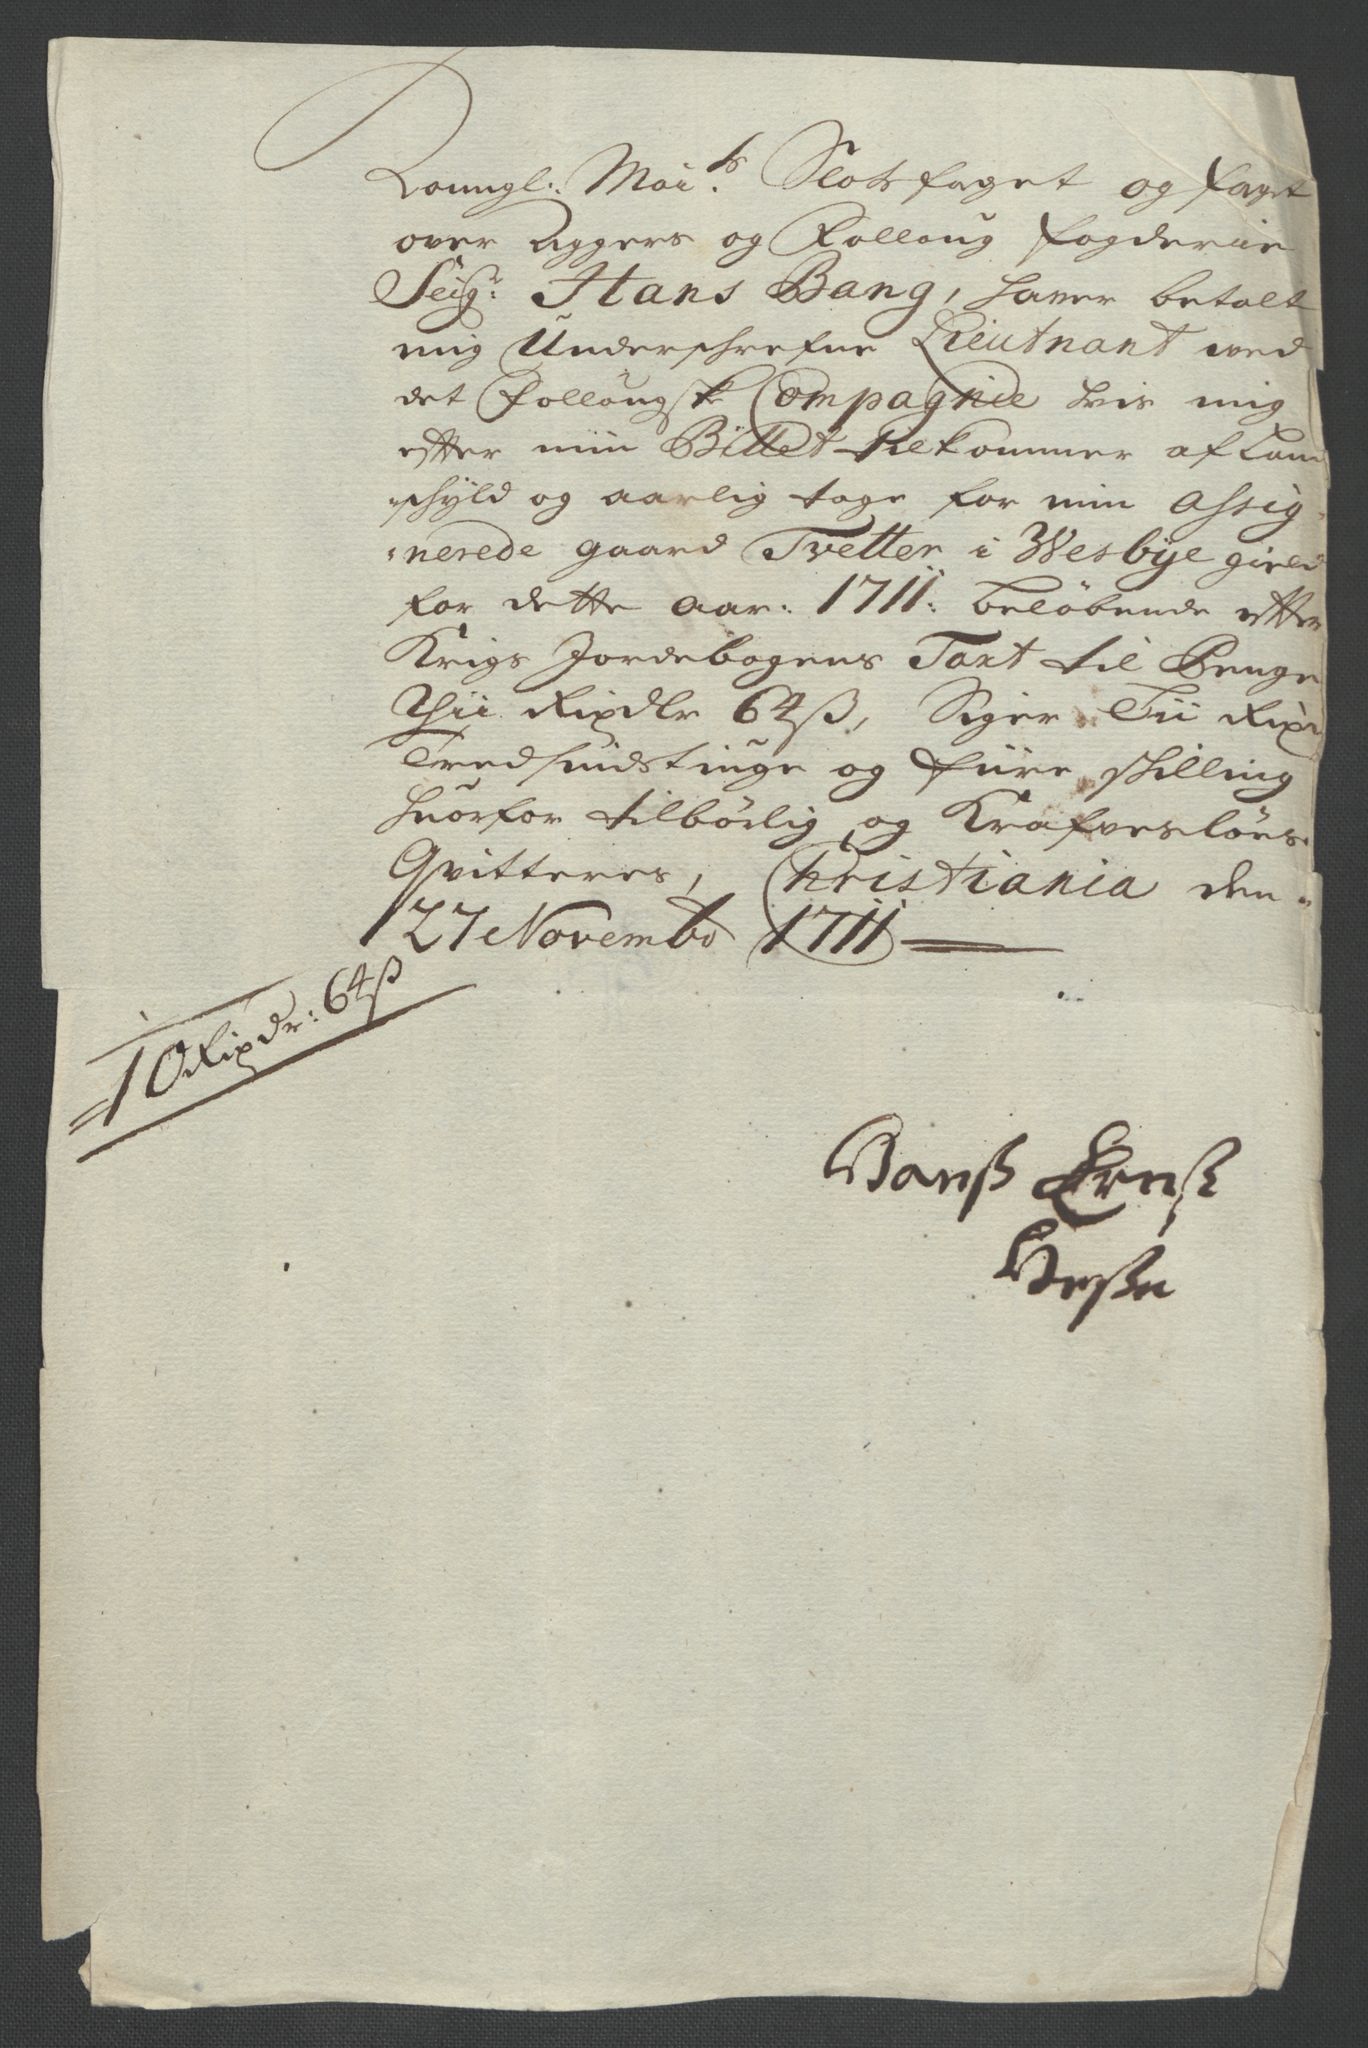 Konngl: Mai:ts Slotsfoget og foget
over Aggers og Folloug fogderie
Seigr: Hans Bang, haver betalt
mig Underschrefne Lieutnant ved
det Follougske Compagnie hvis mig
efter min Billet tilkommer af Land
schyld og aarlig tage for min Assig-
nerede gaard Tvetter i Wesbye gield
for dette aar: 1711: beløbende efter
Krigs Jordebogens Taxt til Penge
Thii Rixdlr 64ß, Siger Tii Rixd
Tredsindstiuge og fiire skilling
huorfor tilbørlig og Krafvesløes
Qvitteres, Christiania den
27 Novembr 1711
10 Rixdr: 64ß
Hanß Ernst
Heße